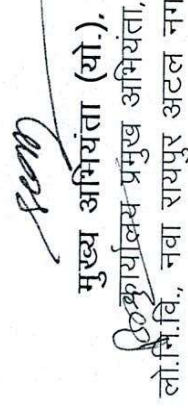 मुख्य अभियंता (यो.),
कार्यालय प्रमुख अभियंता,
लो.नि.वि., नवा रायपुर अटल नग